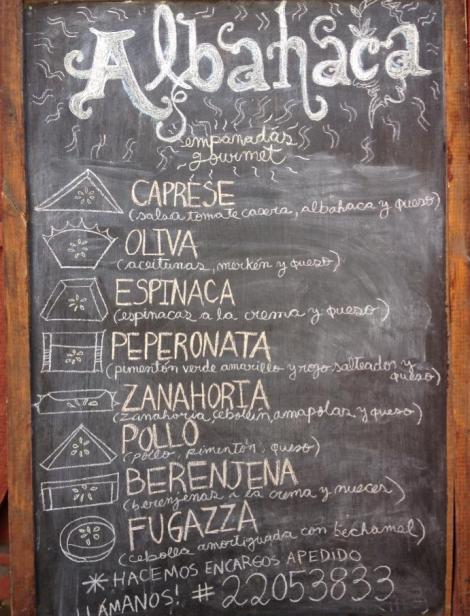 Albahaca
empanadas
gourmet
CAPRESE
(salsa tomate casera, albahaca y queso)
OLIVA
(aceitunas, merkén y queso)
ESPINACA
(espinacas a la crema y queso)
PEPERONATA
(pimentón verde amarillo y rojo salteados y
queso)
ZANAHORIA
(zanahoria, cebollín, amapolas y queso)
POLLO
(pollo, pimentón, queso)
BERENJENA
(berenjenas a la crema y nueces)
FUGAZZA
(cebolla amortiguada con bechamel)
*HACEMOS ENCARGOS APEDIDO
LLÁMANOS! # 22053833